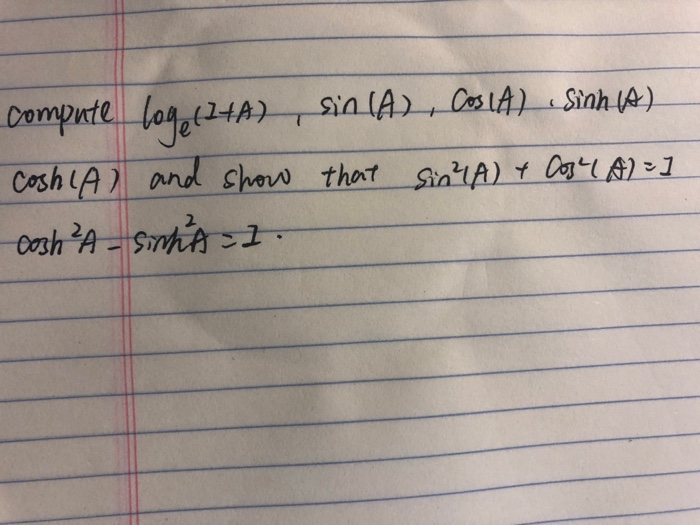 compute loge(I+A), sin(A), cos(A). sinh(A)
cosh(A) and show that sin²(A) + cos²(A) = I
cosh²A - sinh²A = I.